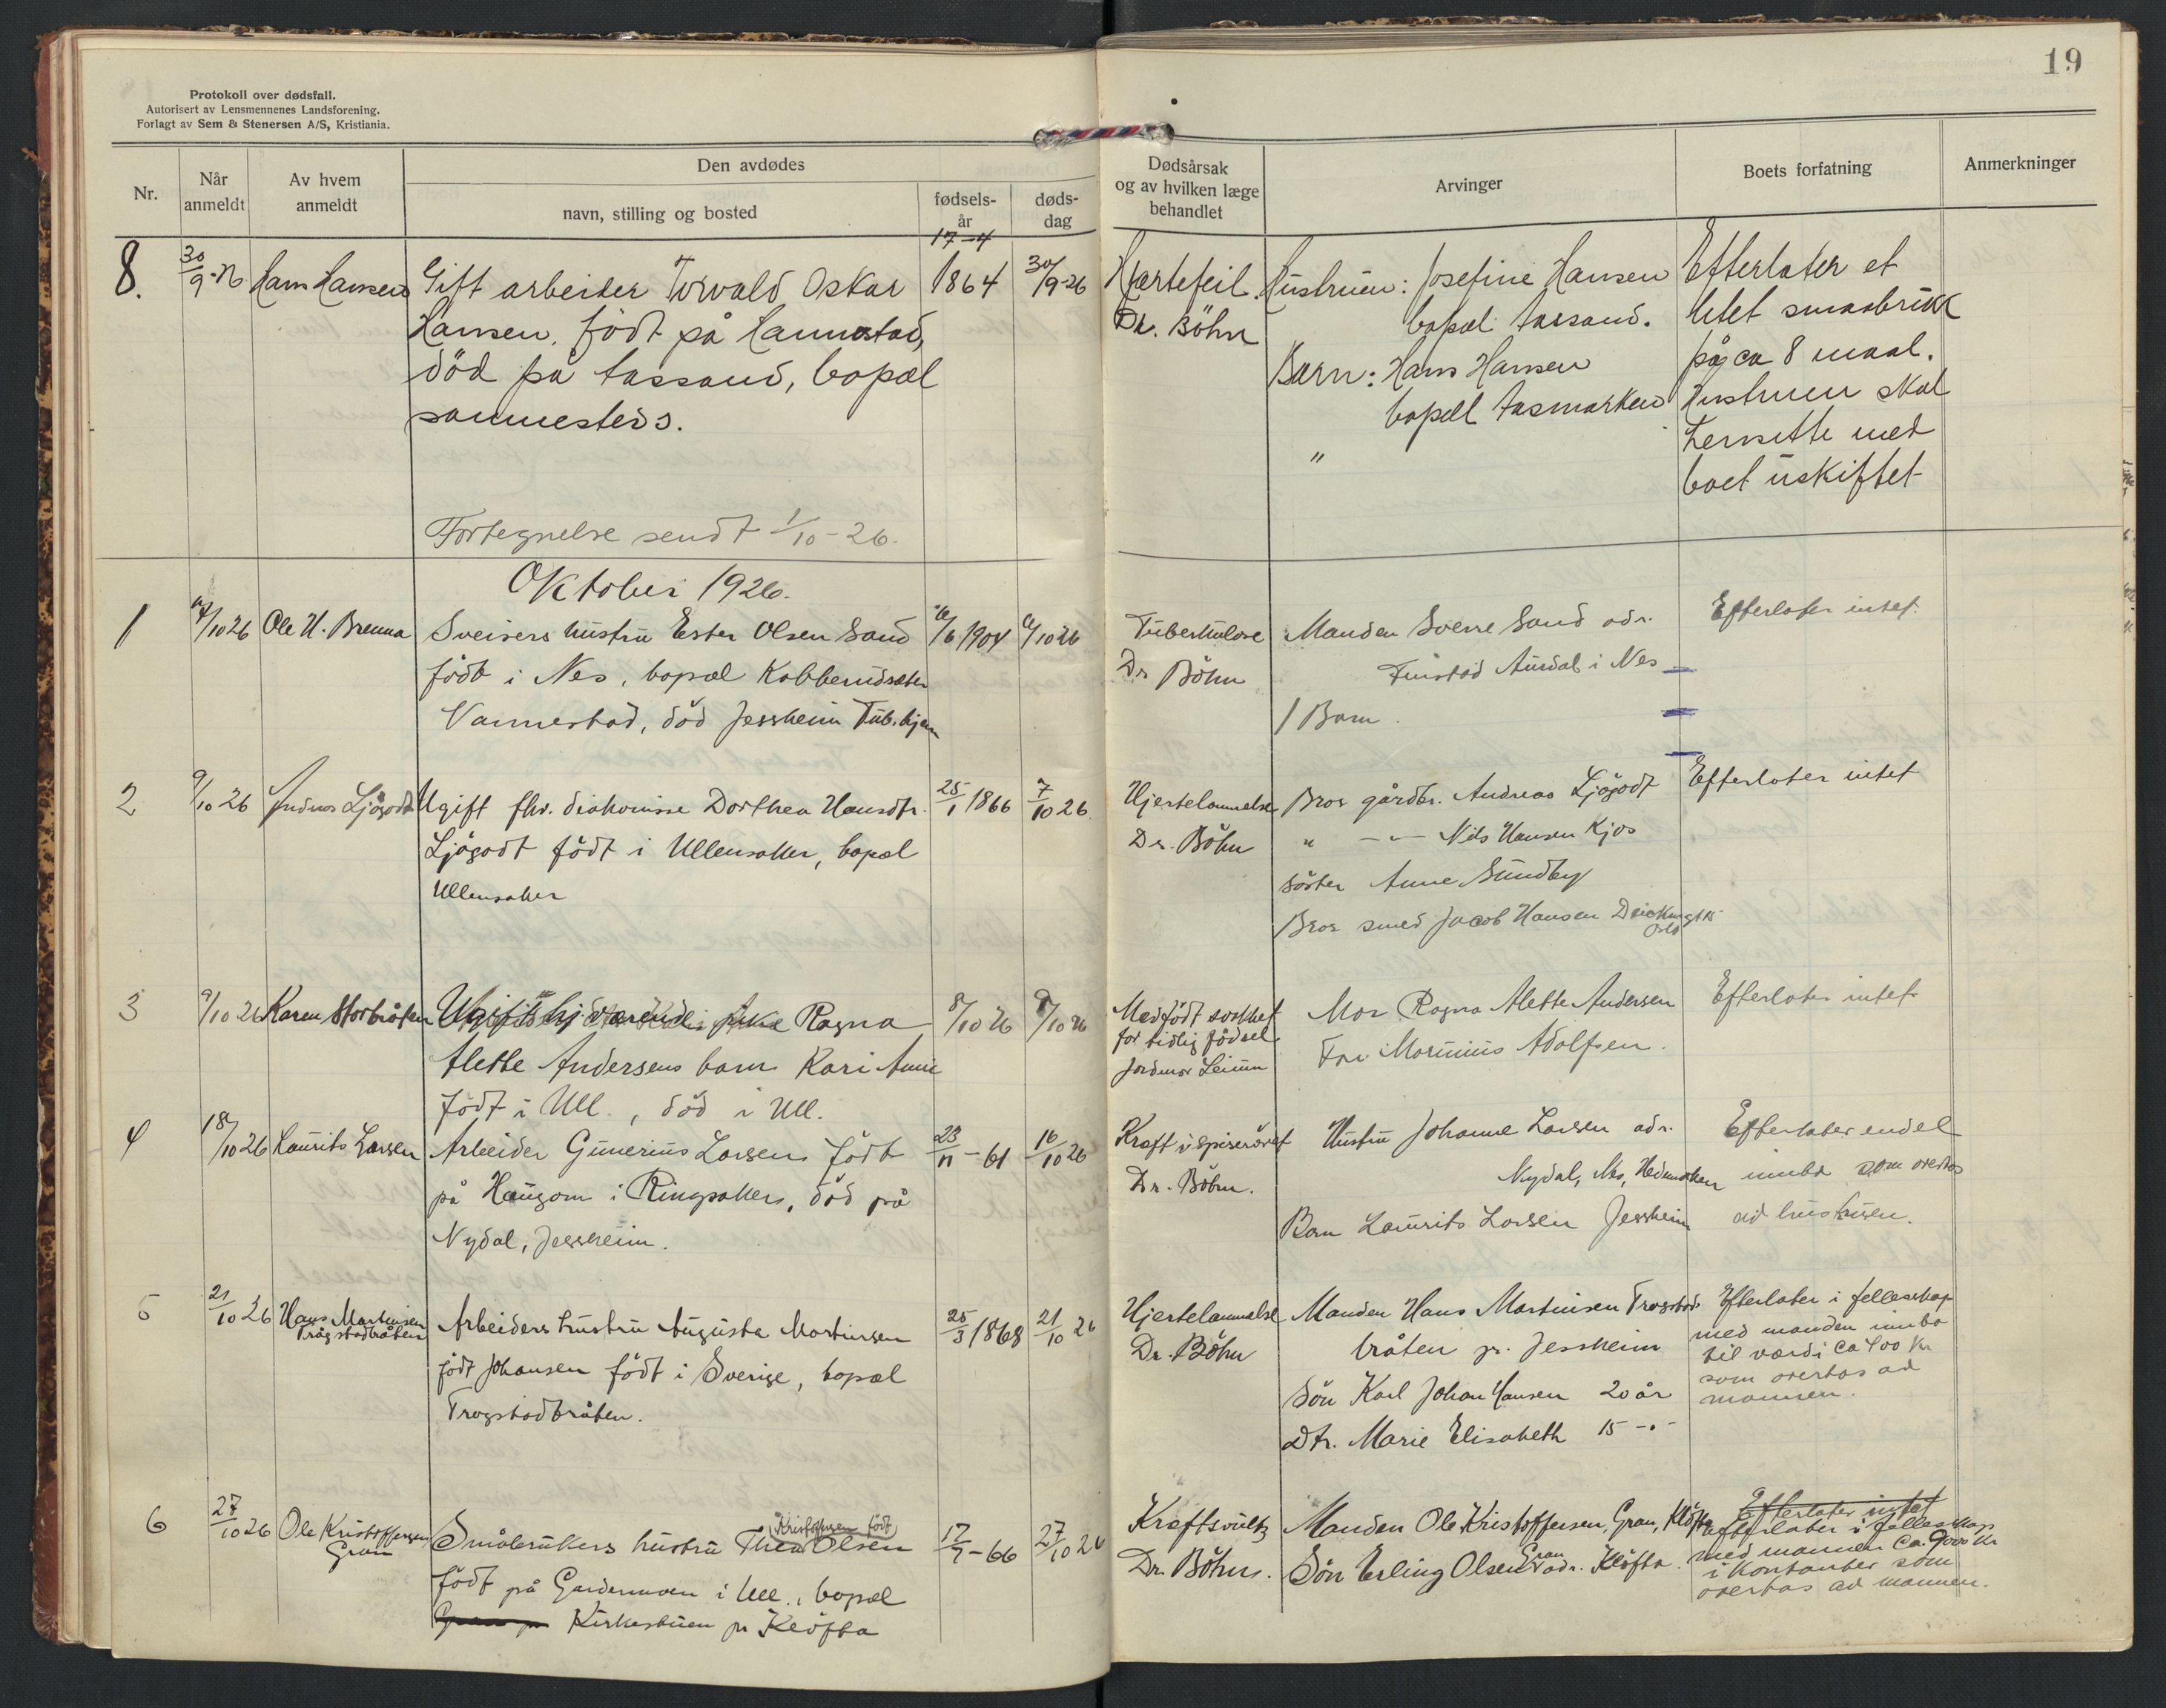 19
Protokoll over dødsfall.
Autorisert av Lensmennenes Landsforening.
Forlagt av Sem & Stenersen A/S, Kristiania.
Nr.
Når
anmeldt
Av hvem
anmeldt
Den avdødes
navn, stilling og bosted
fødsels-
år
døds-
dag
Dødsårsak
og av hvilken læge
behandlet
Arvinger
Boets forfatning
Anmerkninger
8.
30/9-26
Hans Hansen
Gift arbeider Torvald Oskar
Hansen, födt på Hannestad,
död på Aassand, bopæl
sammesteds.
17-4
1864
30/9-26
Hjærtefeil.
Dr. Böhn
Hustruen: Josefine Hansen
bopæl Aassand.
Barn: Hans Hansen
bopæl Aasmarken
"
Efterlater et
litet smaabruk
på ca 8 maal.
Hustruen skal
hensitte med
boet uskiftet
Fortegnelse sendt 1/10-26.
Oktober 1926.
1
/10 26
Ole H. Brenna
Sveisers hustru Ester Olsen Sand
födt i Nes, bopæl Kobberudsæter
Nannestad, död Jessheim Tub.hjem
/6 1904
/10 26
Tuberkulose
Dr Böhn
Manden Sverre Sand adr.
Finstad Aurdal i Nes
1 Barn.
Efterlater intet.
2
9/10 26
Andreas Ljögodt
Ugift fhv. diakonisse Dorthea Hansdtr.
Ljögodt födt i Ullensaker, bopæl
Ullensaker
25/1 1866
7/10 26.
Hjertelammelse
Dr. Böhn
Bror gårdbr. Andreas Ljögodt
" -"- Nils Hansen Kjos
söster Anne Sundby
Bror smed Jacob Hansen 15
Oslo
Efterlater intet
3
9/10 26
Karen Storbråten
Ragna
Alette Andersens barn Kari Anne
födt i Ull., död i Ull.
8/10 26
8/10 26
Medfödt svakhet
for tidlig födsel
Jordmor
Mor Ragna Alette Andersen
Far: Marinius Adolfsen.
Efterlater intet
4
18/10 26
Laurits Larsen
Arbeider Gunerius Larsen födt
på Haugom i Ringsaker, död på
Nydal, Jessheim.
23/11-61
16/10 26
Kræft i spiseröret
Dr. Böhn.
Hustru Johanne Larsen adr.
Nydal, Nes, Hedmarken
Barn Laurits Larsen Jessheim
Efterlater endel
innbo som overtas
av hustruen.
5
21/10 26
Hans Martinsen
Trögstadbråten
Arbeiders hustru Augusta Martinsen
födt Johansen födt i Sverige, bopæl
Trogstadbråten.
25/3 1868
21/10 26
Hjertelammelse
Dr. Böhn
Manden Hans Martinsen Trogstad-
bråten pr. Jessheim
Sön Karl Johan Hansen 20 år
Dtr. Marie Elisabeth 15 -"-
Efterlater i fellesskap
med manden innbo
til værdi ca 400 kr
som overtas av
mannen.
6
27/10 26
Ole Kristoffersen
Gran
Kristoffersen födt
Småbrukers hustru Thea Olsen
födt på Gardermoen i Ull., bopæl
Gran pr Kirkestuen pr Klöfta
17/7-66
27/10 26
Kræftsvulst
Dr. Böhn.
Manden Ole Kristoffersen, Gran, Klöfta
Sön Erling Olsen Gran adr. Klöfta.
Efterlater intet
Efterlater i fellesskap
med mannen ca. 9000 kr
i kontanter som
overtas av mannen.